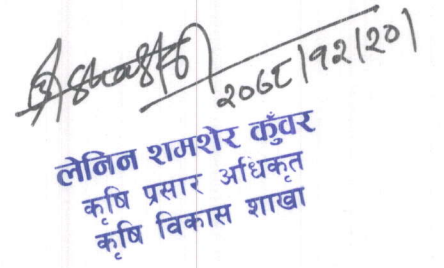 २०७८/१२/२०
लेनिन शमशेर कुँवर
कृषि प्रसार अधिकृत
कृषि विकास शाखा